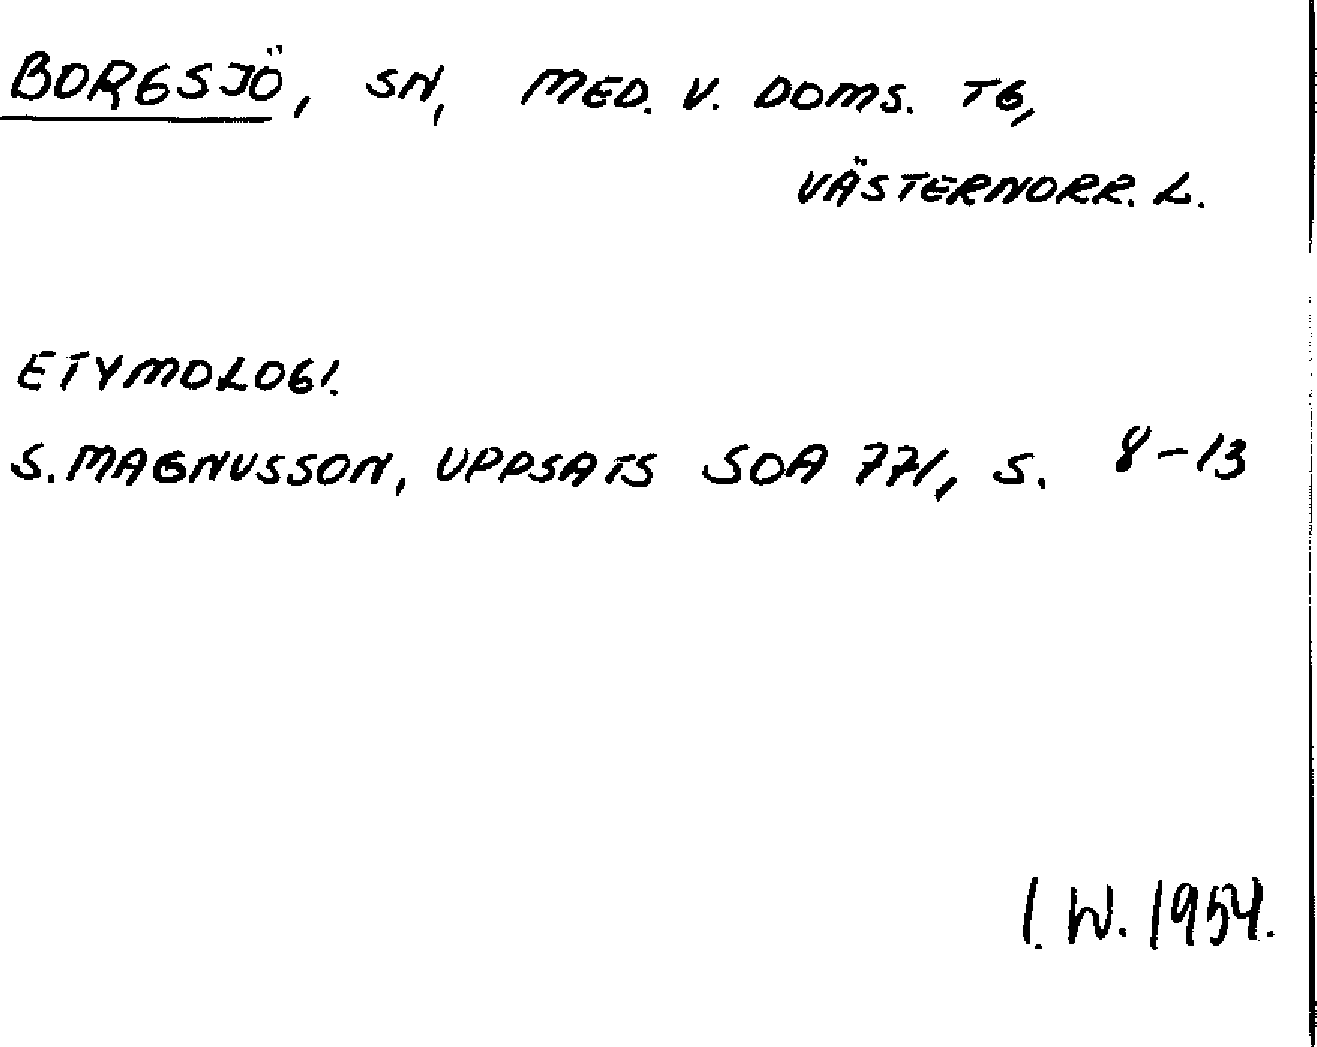 BORGSJÖ, SN, MED. V. DOMS. TG,
VÄSTERNORR. L.
ETYMOLOGI.
S. MAGNUSSON, UPPSATS SOA 771, S. 8-13
I. W. 1954.